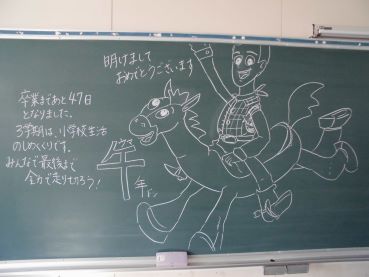 明けまして
おめでとうございます
卒業まであと47日
となりました。
3学期は、小学校生活
のしめくくりです。
みんなで最後まで
全力で走り切ろう!
午年